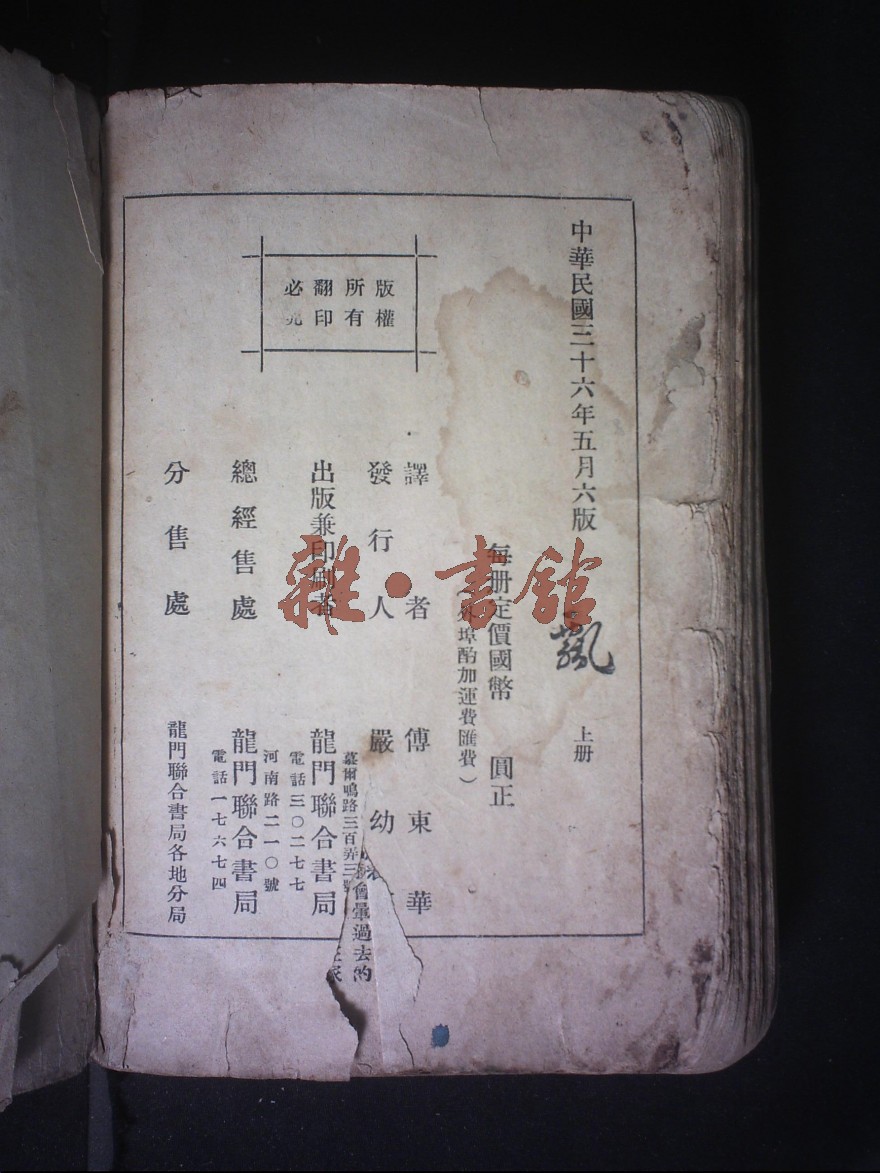 中華民國三十六年五月六版
飄 上册
每册定價國幣 圓正
外埠酌加運費匯費）
譯者 傅東華
發行人 嚴幼
慕爾鳴路三百弄三號
會暈過去的
出版兼印刷者 龍門聯合書局
電話三〇二七七
河南路二一〇號
總經售處 龍門聯合書局
電話一七六七四
分售處 龍門聯合書局各地分局
版權
所有
翻印
必究
雜·書館